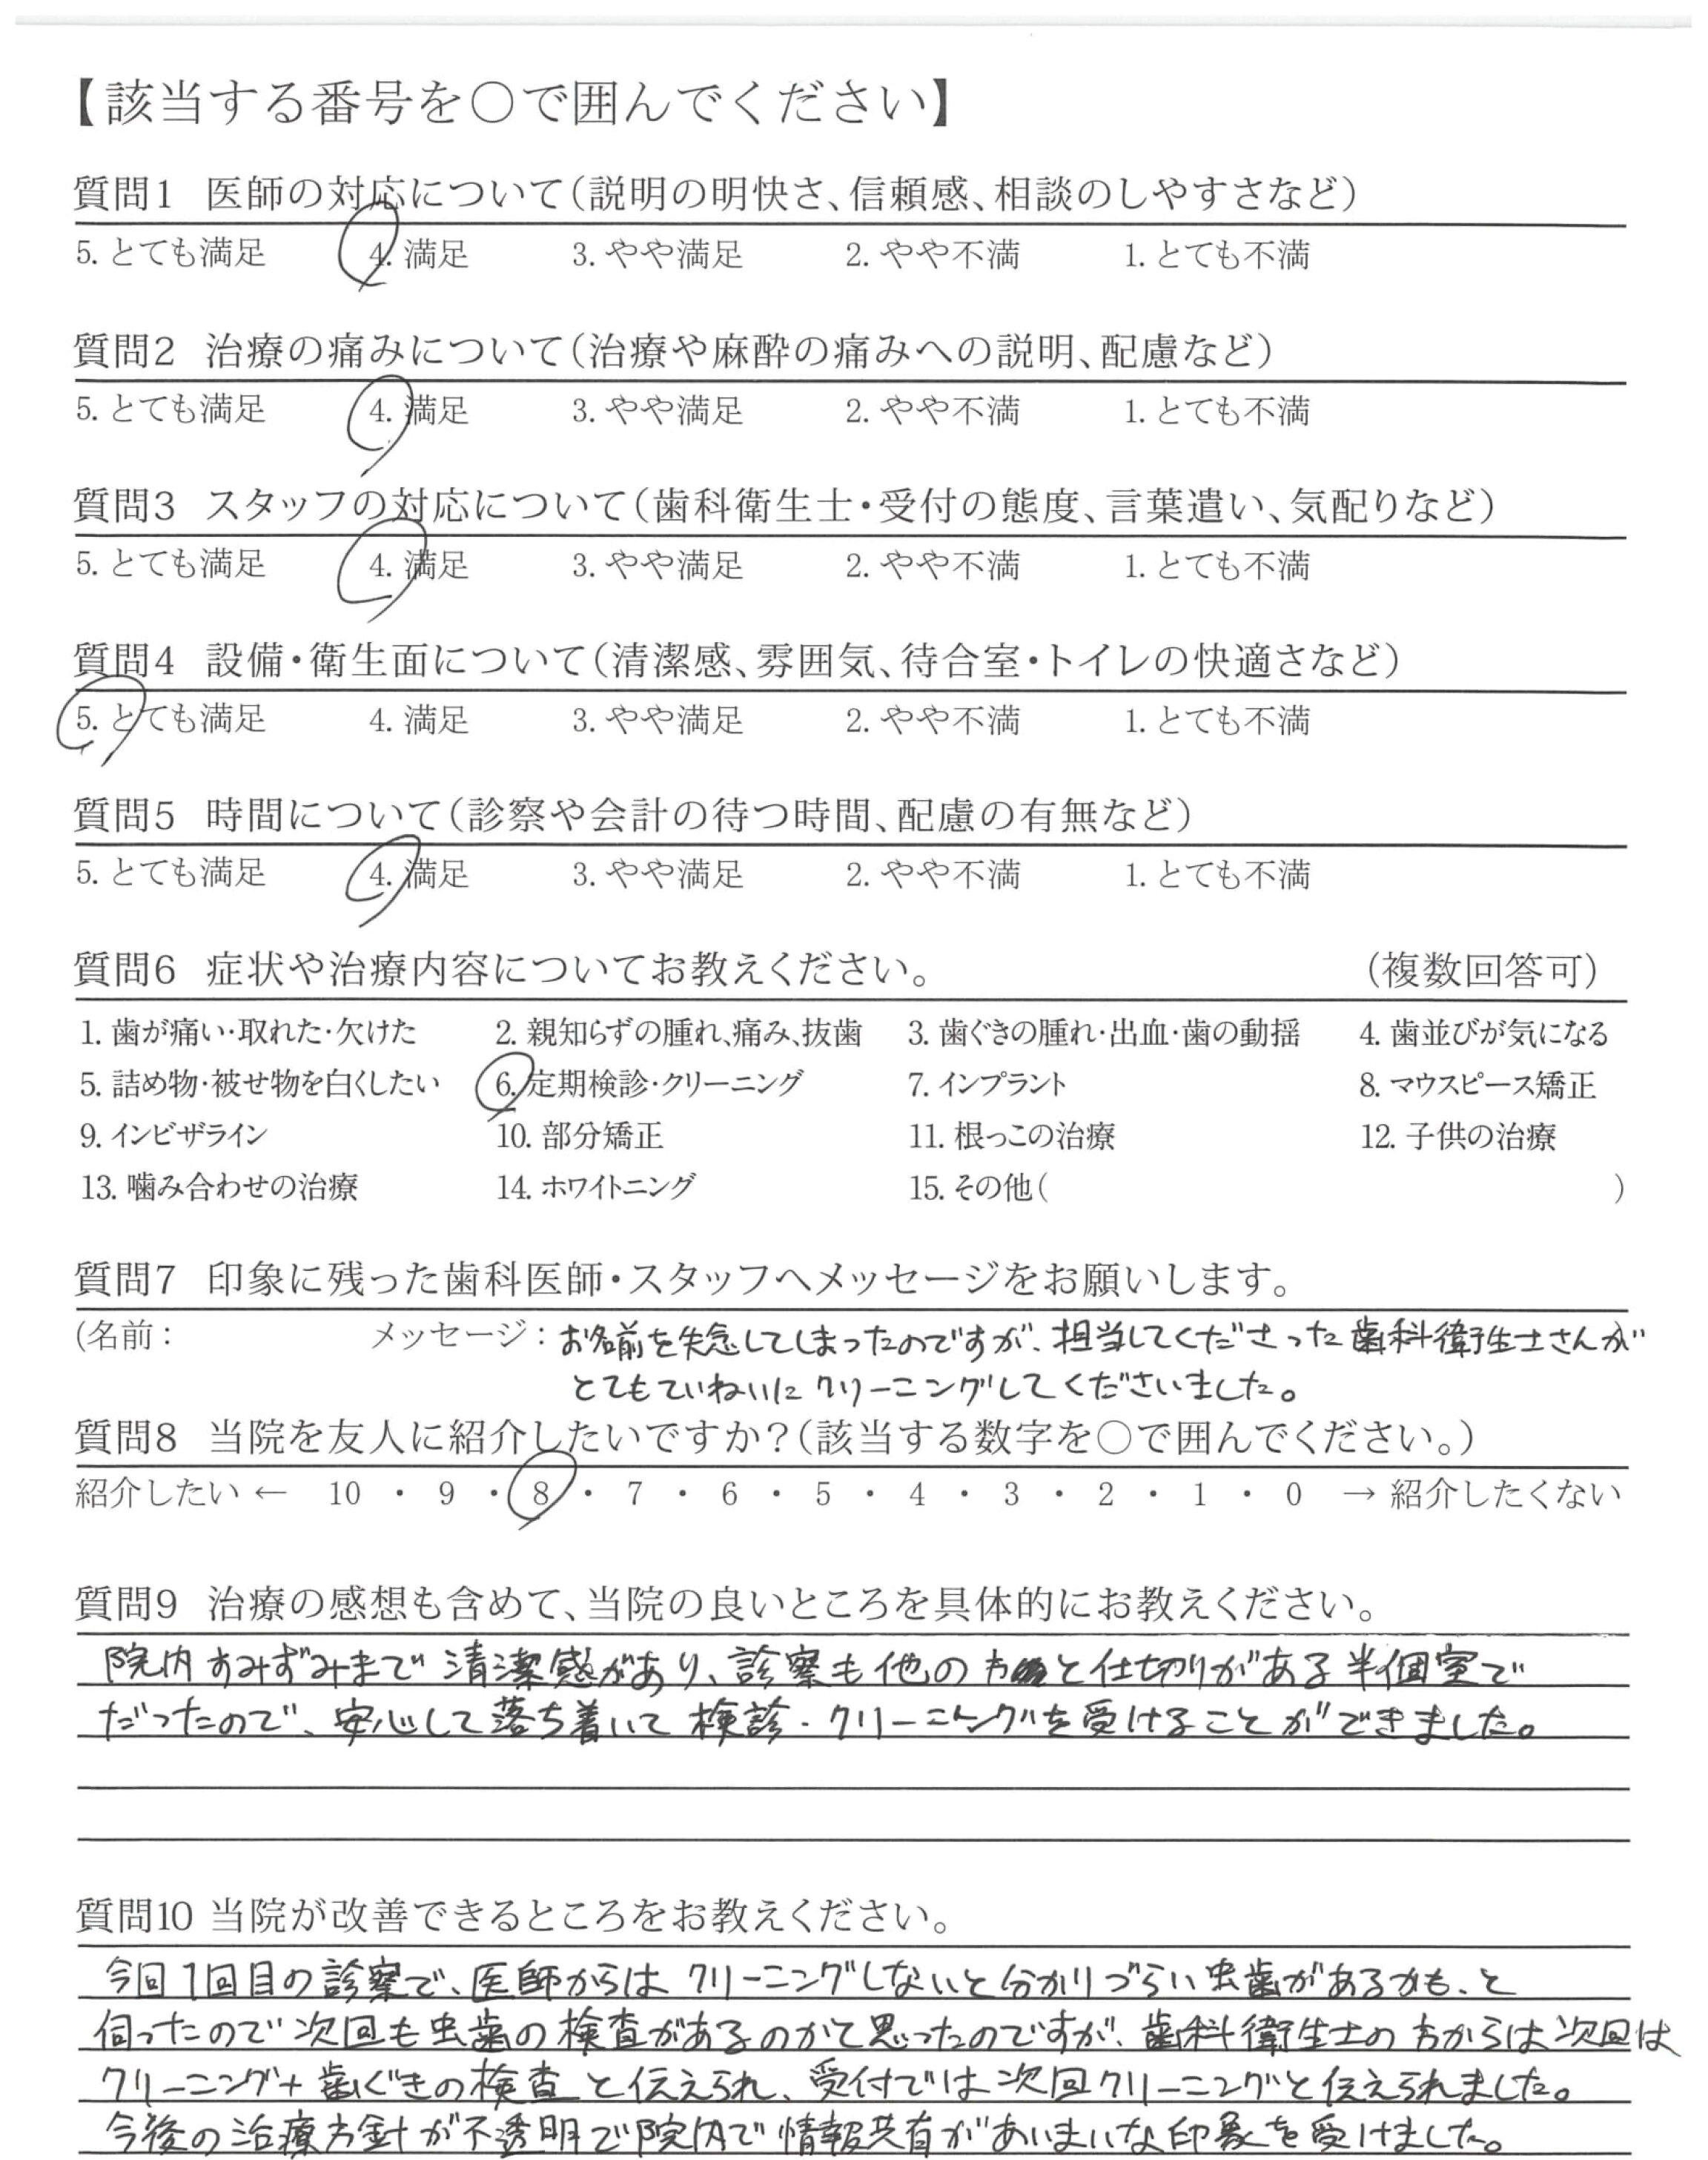 【該当する番号を〇で囲んでください】
質問1 医師の対応について(説明の明快さ、信頼感、相談のしやすさなど)
5. とても満足 4. 満足 3. やや満足 2. やや不満 1. とても不満
質問2 治療の痛みについて(治療や麻酔の痛みへの説明、配慮など)
5. とても満足 4. 満足 3. やや満足 2. やや不満 1. とても不満
質問3 スタッフの対応について(歯科衛生士・受付の態度、言葉遣い、気配りなど)
5. とても満足 4. 満足 3. やや満足 2. やや不満 1. とても不満
質問4 設備・衛生面について(清潔感、雰囲気、待合室・トイレの快適さなど)
5. とても満足 4. 満足 3. やや満足 2. やや不満 1. とても不満
質問5 時間について(診察や会計の待つ時間、配慮の有無など)
5. とても満足 4. 満足 3. やや満足 2. やや不満 1. とても不満
質問6 症状や治療内容についてお教えください。 (複数回答可)
1. 歯が痛い・取れた・欠けた 2. 親知らずの腫れ、痛み、抜歯 3. 歯ぐきの腫れ・出血・歯の動揺 4. 歯並びが気になる
5. 詰め物・被せ物を白くしたい 6. 定期検診・クリーニング 7. インプラント 8. マウスピース矯正
9. インビザライン 10. 部分矯正 11. 根っこの治療 12. 子供の治療
13. 噛み合わせの治療 14. ホワイトニング 15. その他( )
質問7 印象に残った歯科医師・スタッフへメッセージをお願いします。
(名前: メッセージ: お名前を失念してしまったのですが、担当してくださった歯科衛生士さんが
とてもていねいにクリーニングしてくださいました。
質問8 当院を友人に紹介したいですか?(該当する数字を〇で囲んでください。)
紹介したい ← 10 ・ 9 ・ 8 ・ 7 ・ 6 ・ 5 ・ 4 ・ 3 ・ 2 ・ 1 ・ 0 → 紹介したくない
質問9 治療の感想も含めて、当院の良いところを具体的にお教えください。
院内すみずみまで清潔感があり、診察も他の方と仕切りがある半個室で
だったので、安心して落ち着いて検診・クリーニングを受けることができました。
質問10 当院が改善できるところをお教えください。
今回1回目の診察で、医師からはクリーニングしないと分かりづらい虫歯があるかも、と
伺ったので次回も虫歯の検査があるのかと思ったのですが、歯科衛生士の方からは次回は
クリーニング+歯ぐきの検査と伝えられ、受付では次回クリーニングと伝えられました。
今後の治療方針が不透明で院内で情報共有があいまいな印象を受けました。